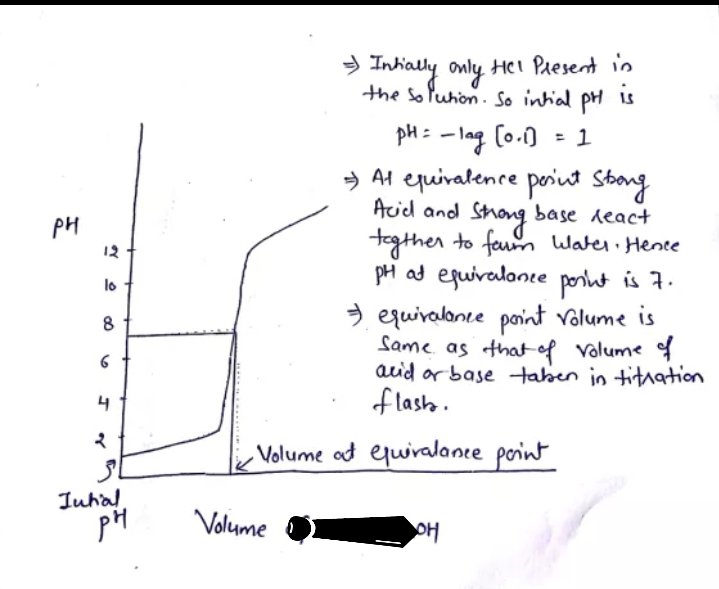 ⇒ Intially only HCl Present in
the Solution. So intial pH is
pH = -log [0.1] = 1
⇒ At equivalence point Strong
Acid and Strong base react
togther to form Water. Hence
pH at equivalance point is 7.
⇒ equivalance point Volume is
Same as that of Volume of
acid or base taken in titration
flask.
pH
12
10
8
6
4
2
Volume at equivalance point
Intial
pH
Volume OH